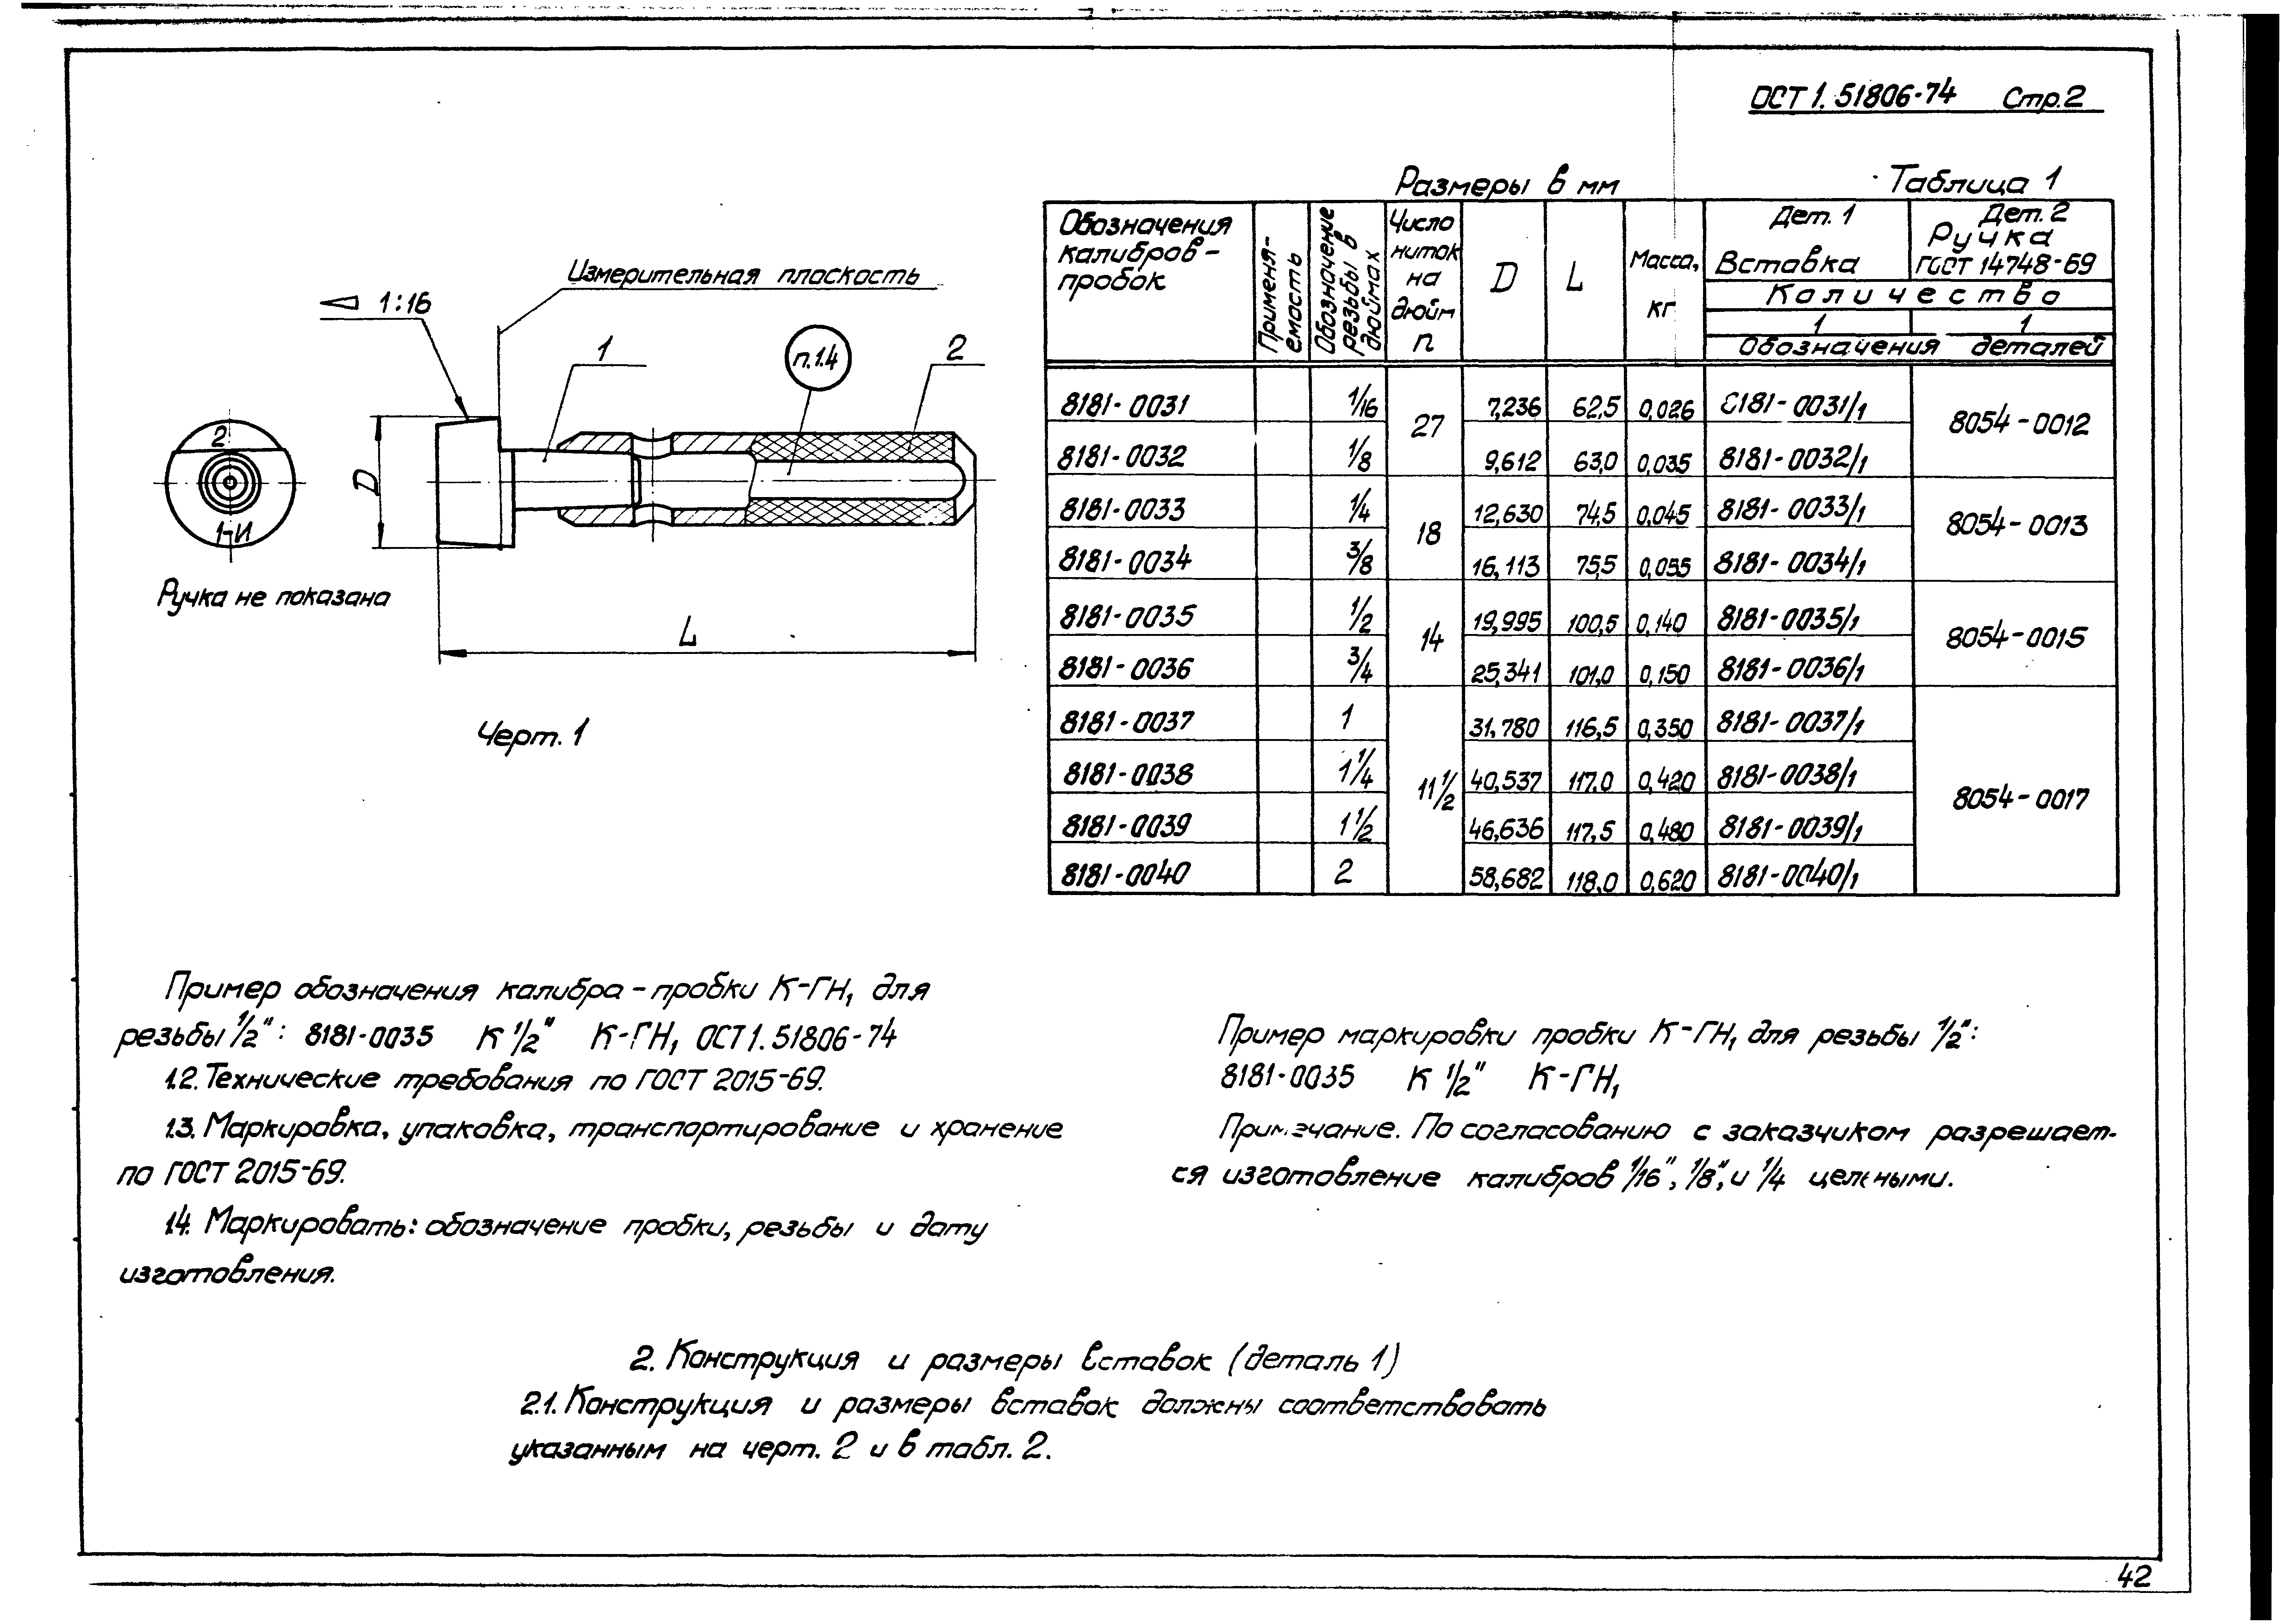 ОСТ 1.51806-74 Стр.2
Измерительная плоскость
1:16
1
п.1.4
2
2
1-И
D
Ручка не показана
L
Черт. 1
Размеры в мм
Таблица 1
Обозначения калибров-пробок | Применяемость | Обозначение резьбы в дюймах | Число ниток на дюйм n | D | L | Масса, кг | Дет. 1 Вставка | Дет. 2 Ручка ГОСТ 14748-69
Количество
1 | 1
Обозначения деталей
8181-0031 | 1/16 | 27 | 7,236 | 62,5 | 0,026 | 8181-0031/1 | 8054-0012
8181-0032 | 1/8 | 9,612 | 63,0 | 0,035 | 8181-0032/1
8181-0033 | 1/4 | 18 | 12,630 | 74,5 | 0,045 | 8181-0033/1 | 8054-0013
8181-0034 | 3/8 | 16,113 | 75,5 | 0,055 | 8181-0034/1
8181-0035 | 1/2 | 14 | 19,995 | 100,5 | 0,140 | 8181-0035/1 | 8054-0015
8181-0036 | 3/4 | 25,341 | 101,0 | 0,150 | 8181-0036/1
8181-0037 | 1 | 11 1/2 | 31,780 | 116,5 | 0,350 | 8181-0037/1 | 8054-0017
8181-0038 | 1 1/4 | 40,537 | 117,0 | 0,420 | 8181-0038/1
8181-0039 | 1 1/2 | 46,636 | 117,5 | 0,480 | 8181-0039/1
8181-0040 | 2 | 58,682 | 118,0 | 0,620 | 8181-0040/1
Пример обозначения калибра-пробки К-ГН₁ для
резьбы 1/2": 8181-0035 К 1/2" К-ГН₁ ОСТ 1.51806-74
1.2. Технические требования по ГОСТ 2015-69.
1.3. Маркировка, упаковка, транспортирование и хранение
по ГОСТ 2015-69.
1.4. Маркировать: обозначение пробки, резьбы и дату
изготовления.
Пример маркировки пробки К-ГН₁ для резьбы 1/2":
8181-0035 К 1/2" К-ГН₁
Примечание. По согласованию с заказчиком разрешает-
ся изготовление калибров 1/16", 1/8", и 1/4 цельными.
2. Конструкция и размеры вставок (деталь 1)
2.1. Конструкция и размеры вставок должны соответствовать
указанным на черт. 2 и в табл. 2.
42